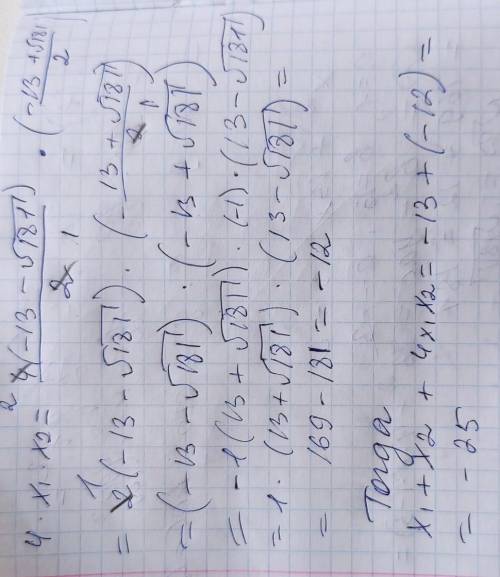 4 · x₁ · x₂ = ²4(-13 - √181)/2 1 · (-13 + √181)/2
= ¹2(-13 - √181) · (-13 + √181)/2 1
= (-13 - √181) · (-13 + √181)
= -1(13 + √181) · (-1) · (13 - √181)
= 1 · (13 + √181) · (13 - √181) =
= 169 - 181 = -12
Тогда
x₁ + x₂ + 4x₁x₂ = -13 + (-12) =
= -25